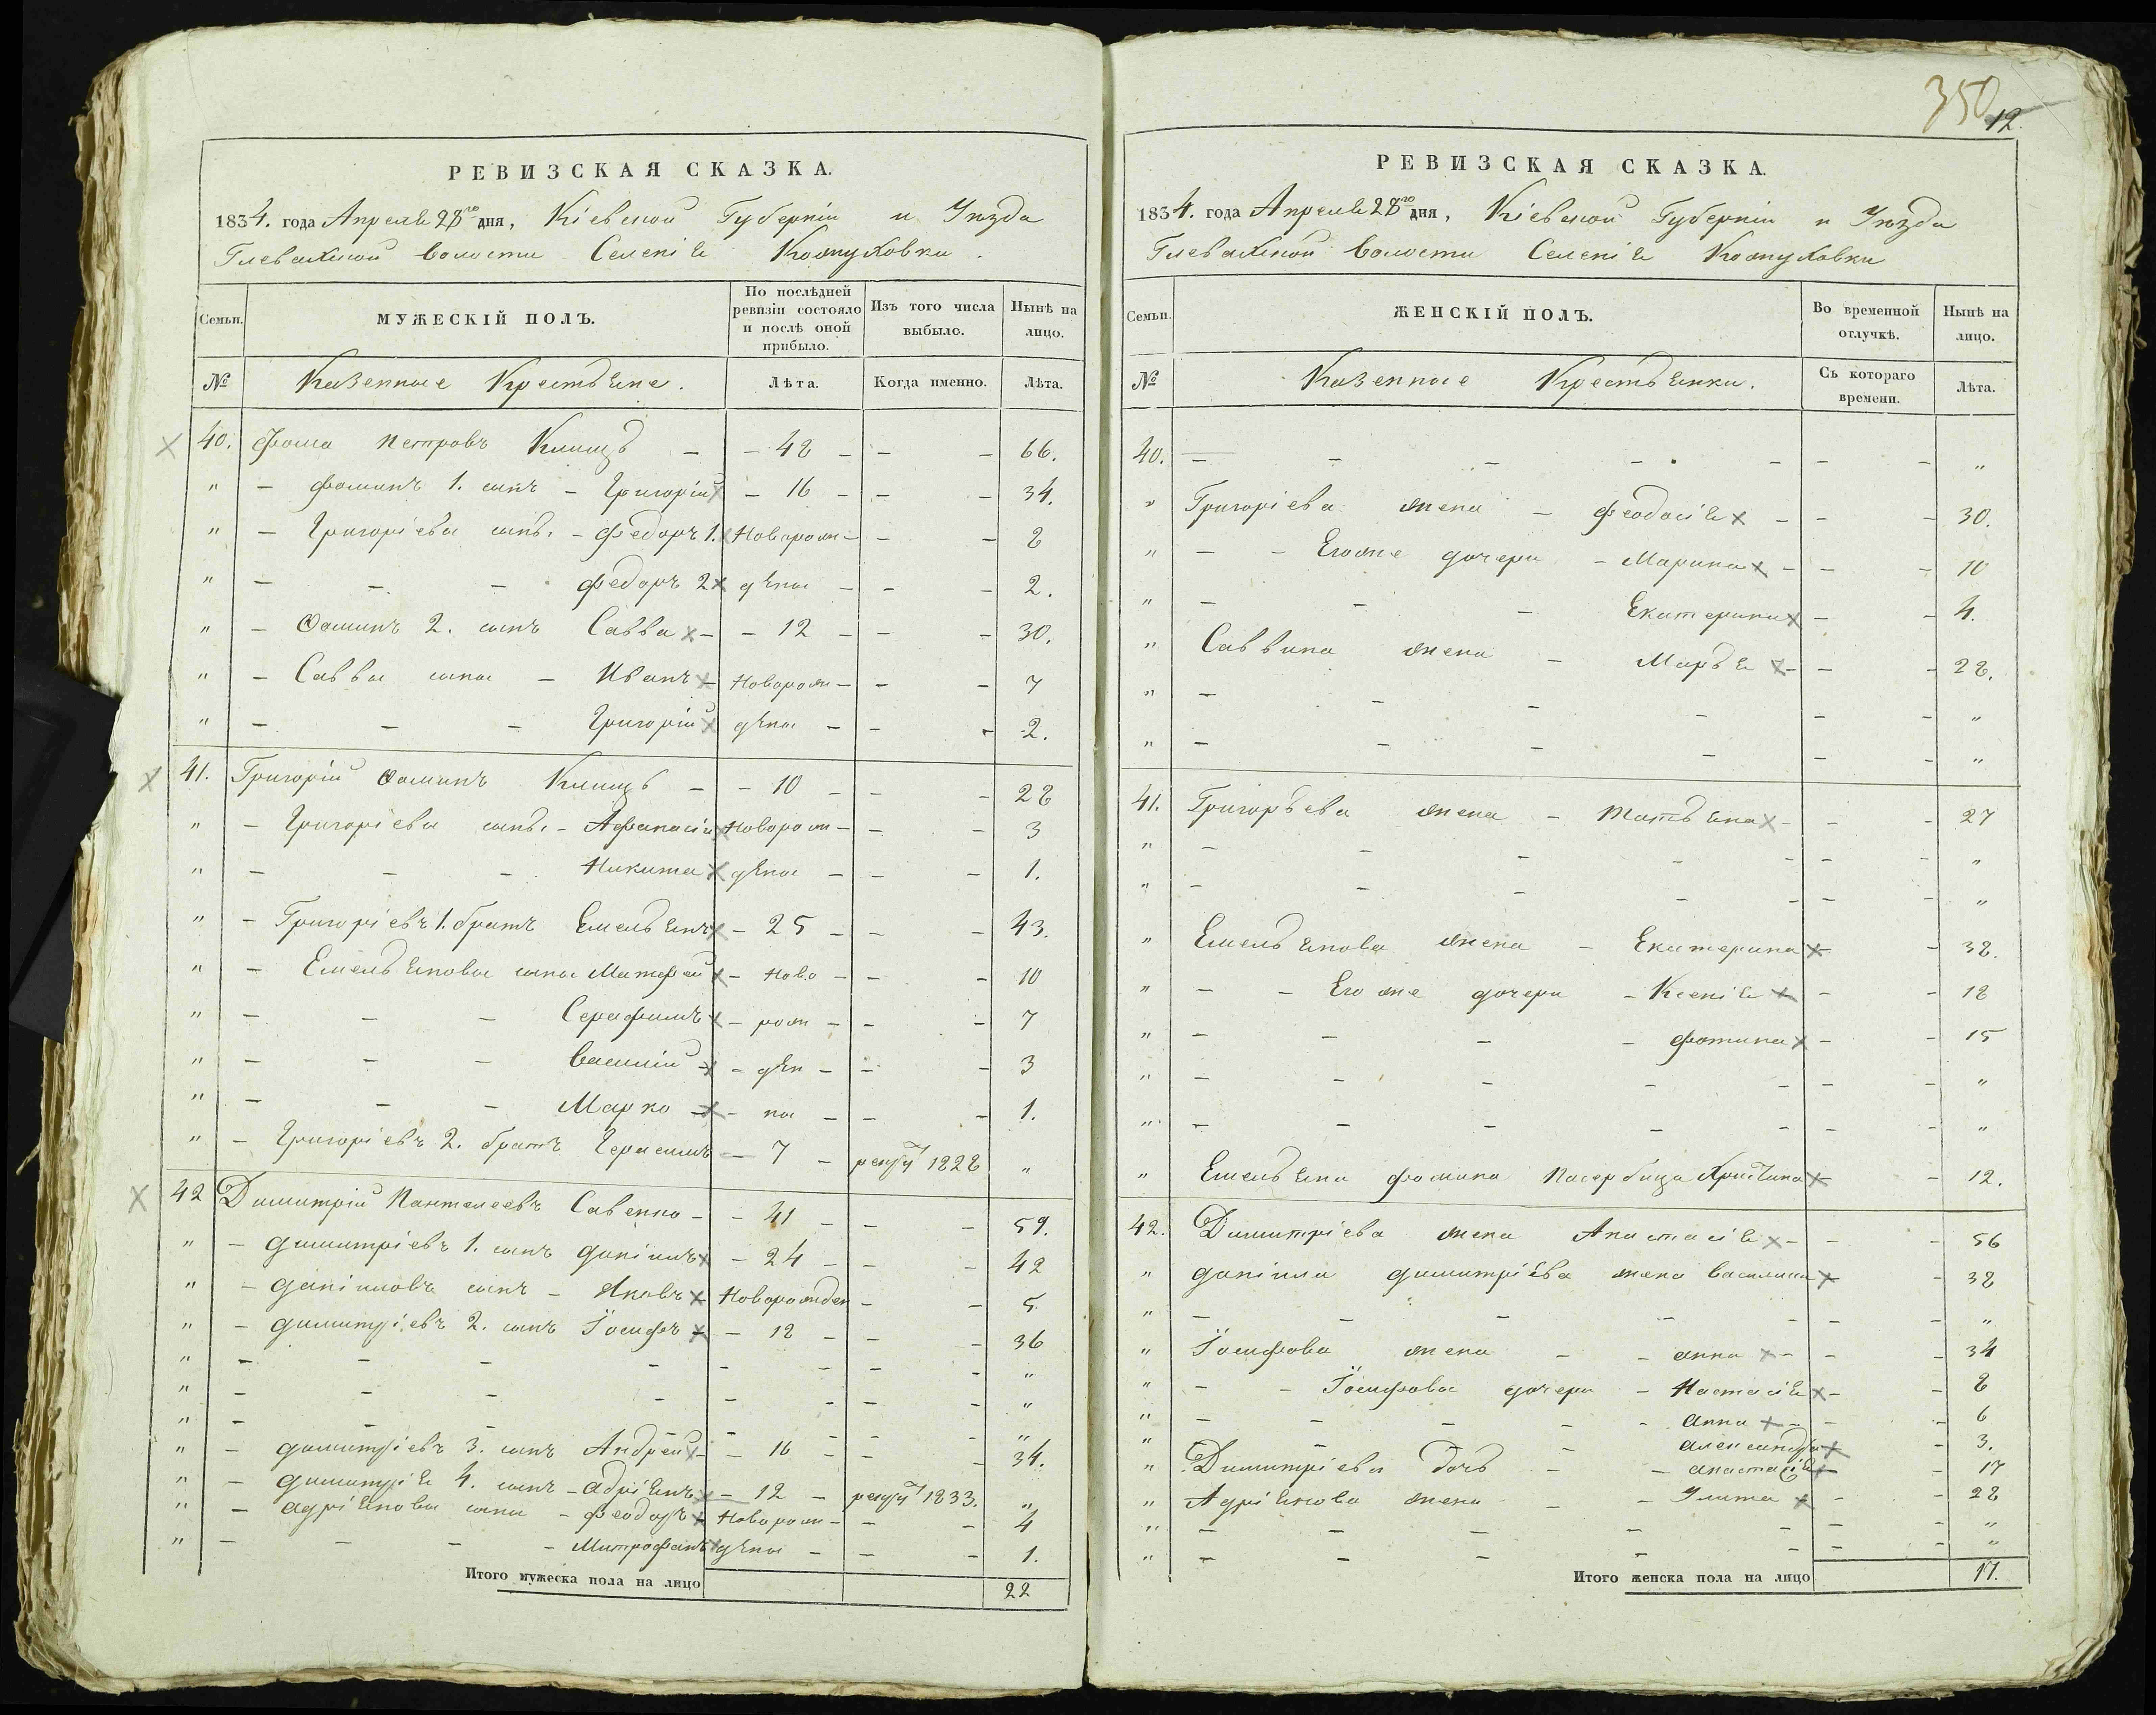 350
12.
РЕВИЗСКАЯ СКАЗКА.
1834. года Апреля 28го дня, Кіевской Губерніи и Уѣзда
Глевахской волости Селенія Кожуховки.
Семьи.
МУЖЕСКІЙ ПОЛЪ.
По послѣдней ревизіи состояло и послѣ оной прибыло.
Изъ того числа выбыло.
Нынѣ на лицо.
№ Казенные Крестьяне. Лѣта. Когда именно. Лѣта.
40. Фома Петровъ Клищъ - - 48 - - - 66.
" - Фоминъ 1. сынъ - Григорій - 16 - - - 34.
" - Григоріевы сынъ. - Федоръ 1. Новорож - - - 8
" - - - Федоръ 2 дѣны - - - 2.
" - Ѳоминъ 2. сынъ Савва - - 12 - - - 30.
" - Саввы сыны - Иванъ - Новорож - - - 7
" - - - Григорій дѣны - - - 2.
41. Григорій Ѳоминъ Клищъ - - 10 - - - 28
" - Григоріевы сынъ. - Афанасій Новорож - - - 3
" - - - Никита дѣны - - - 1.
" - Григоріевъ 1. братъ Емельянъ - 25 - - - 43.
" - Емельяновы сыны Матфей - Ново - - - 10
" - - - Серафимъ - рож - - - 7
" - - - Василій - дѣн - - - 3
" - - - Марко - - ны - - - 1.
" - Григоріевъ 2. братъ Герасимъ - 7 - рекрут 1828 "
42 Димитрій Пантелеевъ Савенко - - 41 - - - 59.
" - Димитріевъ 1. сынъ Даніилъ - 24 - - - 42
" - Даніиловъ сынъ - Яковъ Новорожден - - 5.
" - Димитріевъ 2. сынъ Іосифъ - - 18 - - - 36
" - - - - - - - - "
" - - - - - - - - "
" - - - - - - - - "
" - Димитріевъ 3. сынъ Андрей - - 16 - - - 34.
" - Димитрія 4. сынъ - Адріянъ - 12 - рекрут 1833. "
" - Адріяновы сыны - Феодоръ Новорож - - - 4
" - - - - Митрофанъ дѣны - - - 1.
Итого мужеска пола на лицо 22
РЕВИЗСКАЯ СКАЗКА.
1834. года Апреля 28го дня, Кіевской Губерніи и Уѣзда
Глевахской волости Селенія Кожуховки
Семьи.
ЖЕНСКІЙ ПОЛЪ.
Во временной отлучкѣ.
Нынѣ на лицо.
№ Казенные Крестьянки. Съ котораго времени. Лѣта.
40. - - - - - - - "
" Григоріева жена - Феодосія - - - 30.
" - - Егоже дочери - Марина - - - 10
" - - - Екатерина - - 4.
" Саввина жена - Марья - - - 28.
" - - - - - - "
" - - - - - - "
41. Григорьева жена - Татьяна - - - 27
" - - - - - - - "
" - - - - - - - "
" Емельянова жена - Екатерина - - 38.
" - - Егоже дочери - Ксенія - - 18
" - - - - Фотина - - 15
" - - - - - - - "
" - - - - - - - "
" Емельяна Фомина Пасербица Христина - - 12.
42. Димитріева жена Анастасія - - - 56
" Даніила Димитріева жена Василина - - 38
" - - - - - - - "
" Іосифова жена - - Анна - - - 34
" - - Іосифовы дочери - Настасія - - 8
" - - - - - Анна - - - 6
" - - - Александра - 3.
" Димитріева дочь - - Анастасія - 17
" Адріянова жена - - Улита - - 28
" - - - - - - - "
" - - - - - - - "
Итого женска пола на лицо 17.